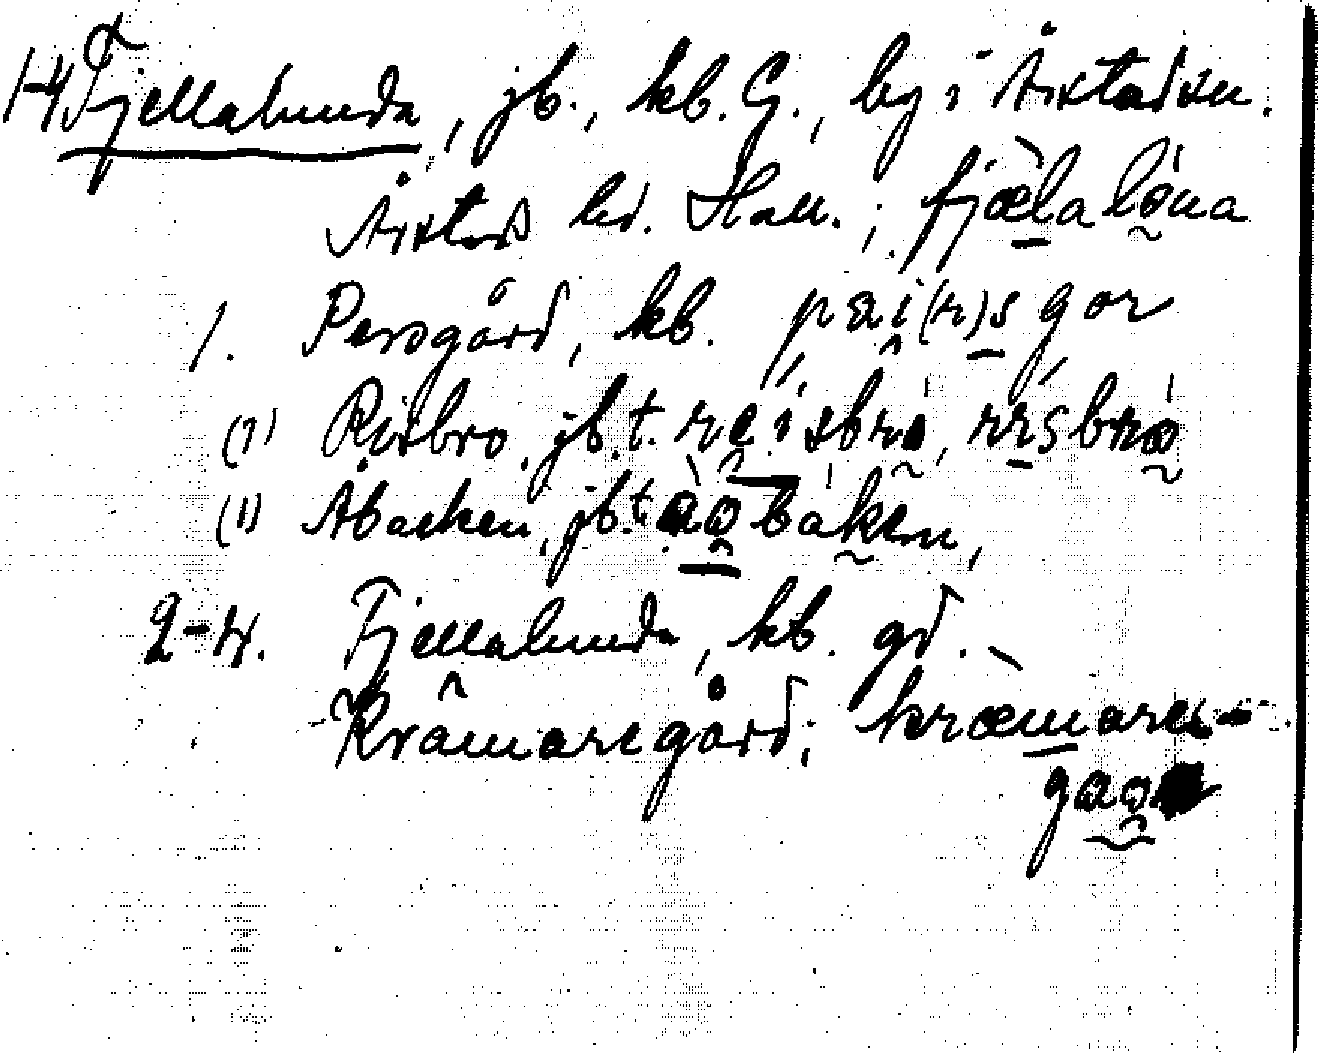 1-4 Fjellalunda, jb., kb. G., by i Årstad sn.
Årstads hd. Hall.; fjæ̀lalṍna
1. Persgård, kb. pæi(r)sgor
(1) Risbro, jb.t. reisbro, risbro
(1) Åbacken, jb.t. aobaken,
2-4. Fjellalunda, kb. gd.
Krâmaregård; kræmare-
gao